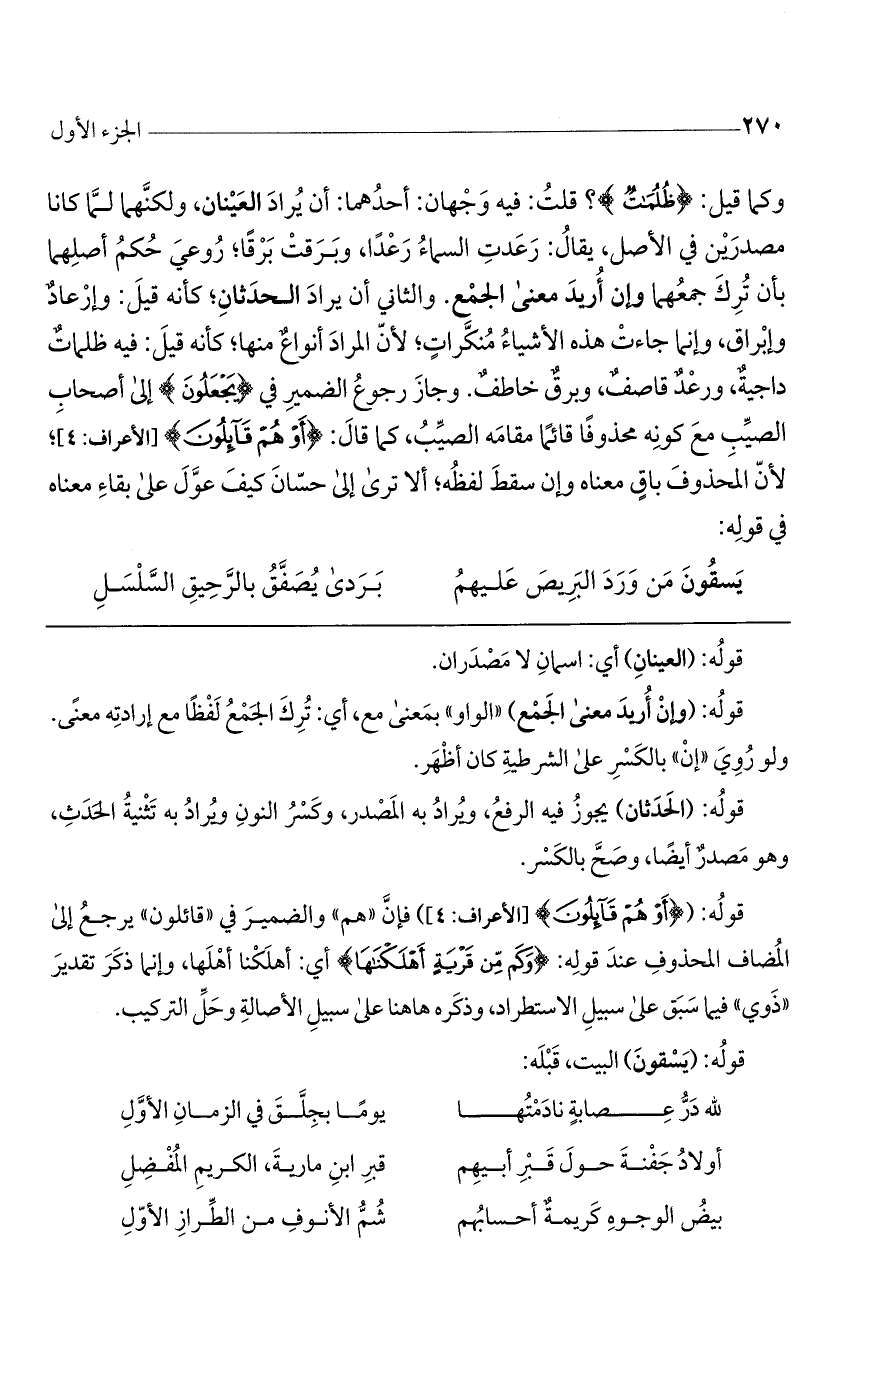 ٢٧٠ الجزء الأول
وكما قيل: ﴿ظُلُمَٰتٌ﴾؟ قلتُ: فيه وَجْهان: أحدُهما: أن يُرادَ العَيْنان، ولكنَّهما لـمَّا كانا
مصدرَيْن في الأصل، يقالُ: رَعَدتِ السماءُ رَعْدًا، وبَـرَقتْ بَرْقًا؛ رُوعيَ حُكمُ أصلِهما
بأن تُرِكَ جمعُهما وإن أُريدَ معنىٰ الجمْع. والثاني أن يرادَ الـحدثانِ؛ كأنه قيلَ: وإرْعادٌ
وإبْراق، وإنما جاءتْ هذه الأشياءُ مُنكَّراتٍ؛ لأنّ المرادَ أنواعٌ منها؛ كأنه قيلَ: فيه ظلماتٌ
داجيةٌ، ورعْدٌ قاصفٌ، وبرقٌ خاطفٌ. وجازَ رجوعُ الضميرِ في ﴿يَجْعَلُونَ﴾ إلىٰ أصحابِ
الصيِّبِ معَ كونِه محذوفًا قائمًا مقامَه الصيِّبُ، كما قالَ: ﴿أَوْ هُمْ قَآئِلُونَ﴾ [الأعراف: ٤]؛
لأنّ المحذوفَ باقٍ معناه وإن سقطَ لفظُه؛ ألا ترىٰ إلىٰ حسّانَ كيفَ عوَّلَ علىٰ بقاءِ معناه
في قولِه:
يَسقُونَ مَن وَرَدَ البَرِيصَ عَلـيهمُ بَـرَدىٰ يُصَفَّقُ بالرَّحِيقِ السَّلْسَـلِ
قولُه: (العينانِ) أي: اسمانِ لا مَصْدَران.
قولُه: (وإنْ أُريدَ معنىٰ الجَمْع) «الواو» بمَعنىٰ مع، أي: تُرِكَ الجَمْعُ لَفْظًا مع إرادتِه معنًى.
ولو رُوِيَ «إنْ» بالكَسْرِ علىٰ الشرطيةِ كان أظْهَر.
قولُه: (الحَدَثان) يجوزُ فيه الرفعُ، ويُرادُ به المَصْدر، وكَسْرُ النونِ ويُرادُ به تَثْنيةُ الحَدَثِ،
وهو مَصدرٌ أيضًا، وصَحَّ بالكَسْر.
قولُه: (﴿أَوْ هُمْ قَآئِلُونَ﴾ [الأعراف: ٤]) فإنَّ «هم» والضميـرَ في «قائلون» يرجـعُ إلىٰ
المُضاف المحذوفِ عندَ قولِه: ﴿وَكَم مِّن قَرْيَةٍ أَهْلَكْنَٰهَا﴾ أي: أهلَكْنا أهْلَها، وإنما ذكَرَ تقديرَ
«ذَوي» فيما سَبَق علىٰ سبيلِ الاستطراد، وذكَره هاهنا علىٰ سبيلِ الأصالةِ وحَلِّ التركيب.
قولُه: (يَسْقونَ) البيت، قَبْلَه:
لله دَرُّ عِـصابةٍ نادَمْتُهـا يومًـا بجِلَّـقَ في الزمـانِ الأوَّلِ
أولادُ جَفْنـةَ حـولَ قَـبْرِ أبـيهِم قبرِ ابنِ ماريـةَ، الكـريمِ المُفْـضِلِ
بيضُ الوجـوهِ كَريمـةٌ أحـسابُهم شُمُّ الأنـوفِ مـن الطِّرازِ الأوّلِ